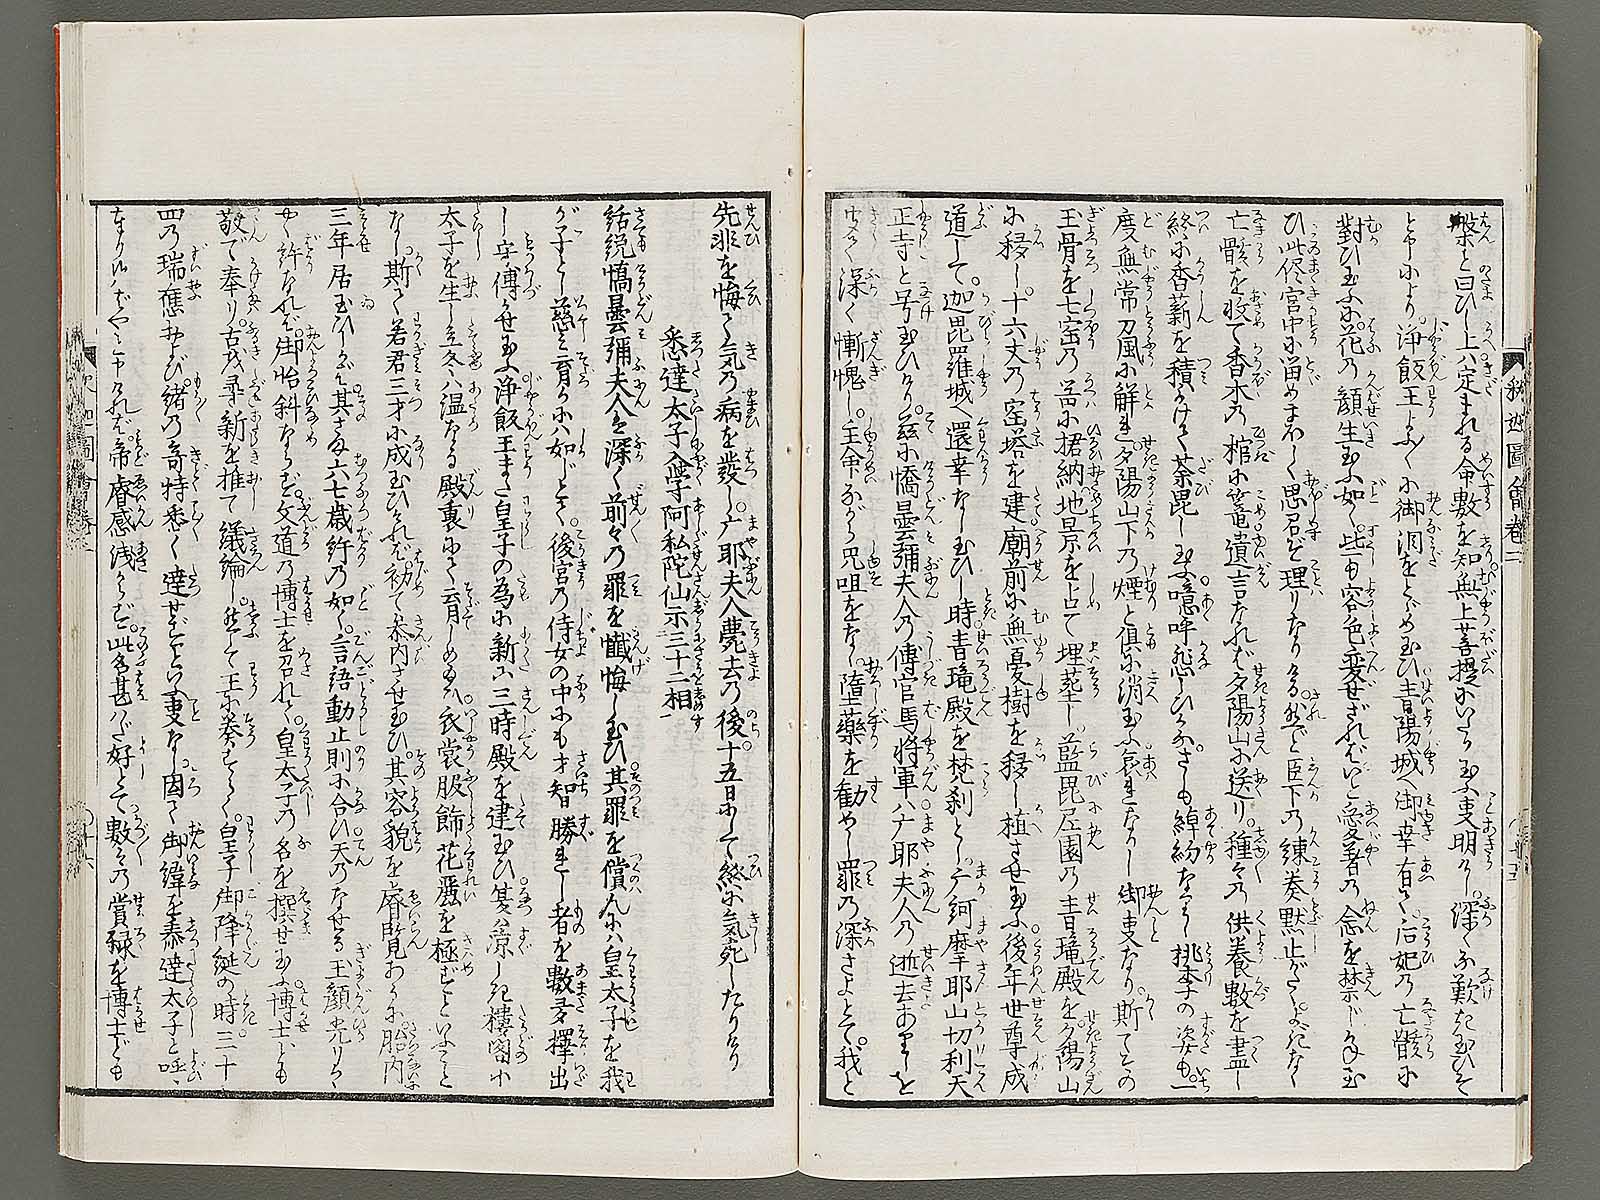 槃と曰ひし上ハ定まれる命數を知無上菩提にいたり玉ふ叓明けし深くな歎き玉ひそ
と申により浄飯王よふ〳〵に御涙をとゞめ玉ひ青陽城へ御幸有て后妃の亡骸に
對ひ玉ふに花の顔生玉ふ如く些も容色変せざればいとゞ愛著の念を禁じかね玉
ひ此侭宮中に留めまほしく思召ど理りなりける然ど臣下の練奏黙止がたくよぎなく
亡骸を收て香木の棺に篭遺言なれば夕陽山に送り種々の供養數を盡し
終に香薪を積かけて荼毘し玉ふ噫呼悲しひかなさしも綽約なりし桃李の姿も一
度無常の風に觧て夕陽山下の煙と俱に消玉ふ哀れなりし御叓なり斯てその
王骨を七宝の筥に捃納地景を占て埋葬し藍毘尼園の青瑠殿を夕陽山
に移し十六丈の宝塔を建廟前に無憂樹を移し植させ玉ふ後年世尊成
道して迦毘羅城へ還幸なし玉ひし時青瑠殿を梵刹とし广訶摩耶山切利天
正寺と号玉ひけり茲に憍曇彌夫人の傅官馬将軍ハ广耶夫人の逝去ありしを
深く慚愧し主命ながら咒咀をなし墮薬を勧めし罪の深さよとて我と
先非を悔て氣の病を發し广耶夫人薨去の後十五日にして終に氣死したりけり
悉達太子入學阿私陀仙示三十二相
話説憍曇彌夫人ハ深く前々の罪を懺悔し玉ひ其罪を償んにハ皇太子を我
が子とし慈み育んにハ如じとて後宮の侍女の中にも才智勝れし者を數多擇出
し字傅かせ玉ふ浄飯王また皇子の為に新に三時殿を建玉ひ夏ハ凉しき樓閣に
太子を生し立冬ハ温なる殿裏にて育しめ玉ひ衣裳服飾花麗を極ずといふこと
なし斯て若君三才に成玉ひければ初て参内させ玉ひ其容貌を睿覧あるに胎内
三年居玉ひしかバ其さま六七歳許の如く言語動止則に合ひ天のなせる王顔光りかゝ
やく許なれば御怡斜ならず文道の博士を召れて皇太子の名を撰せ玉ふ博士ども
敬で奉り古茂尋新を推て議論し然して王に奏すらく皇子御降誕の時三十
四の瑞應および緒の奇特悉く達せずといふ叓なし因て御緯を悉達太子と呼
奉り玉ハゞやと申ければ帝睿感浅からず此名甚だ好とて數々の賞禄を博士ども
釈迦圖會卷二